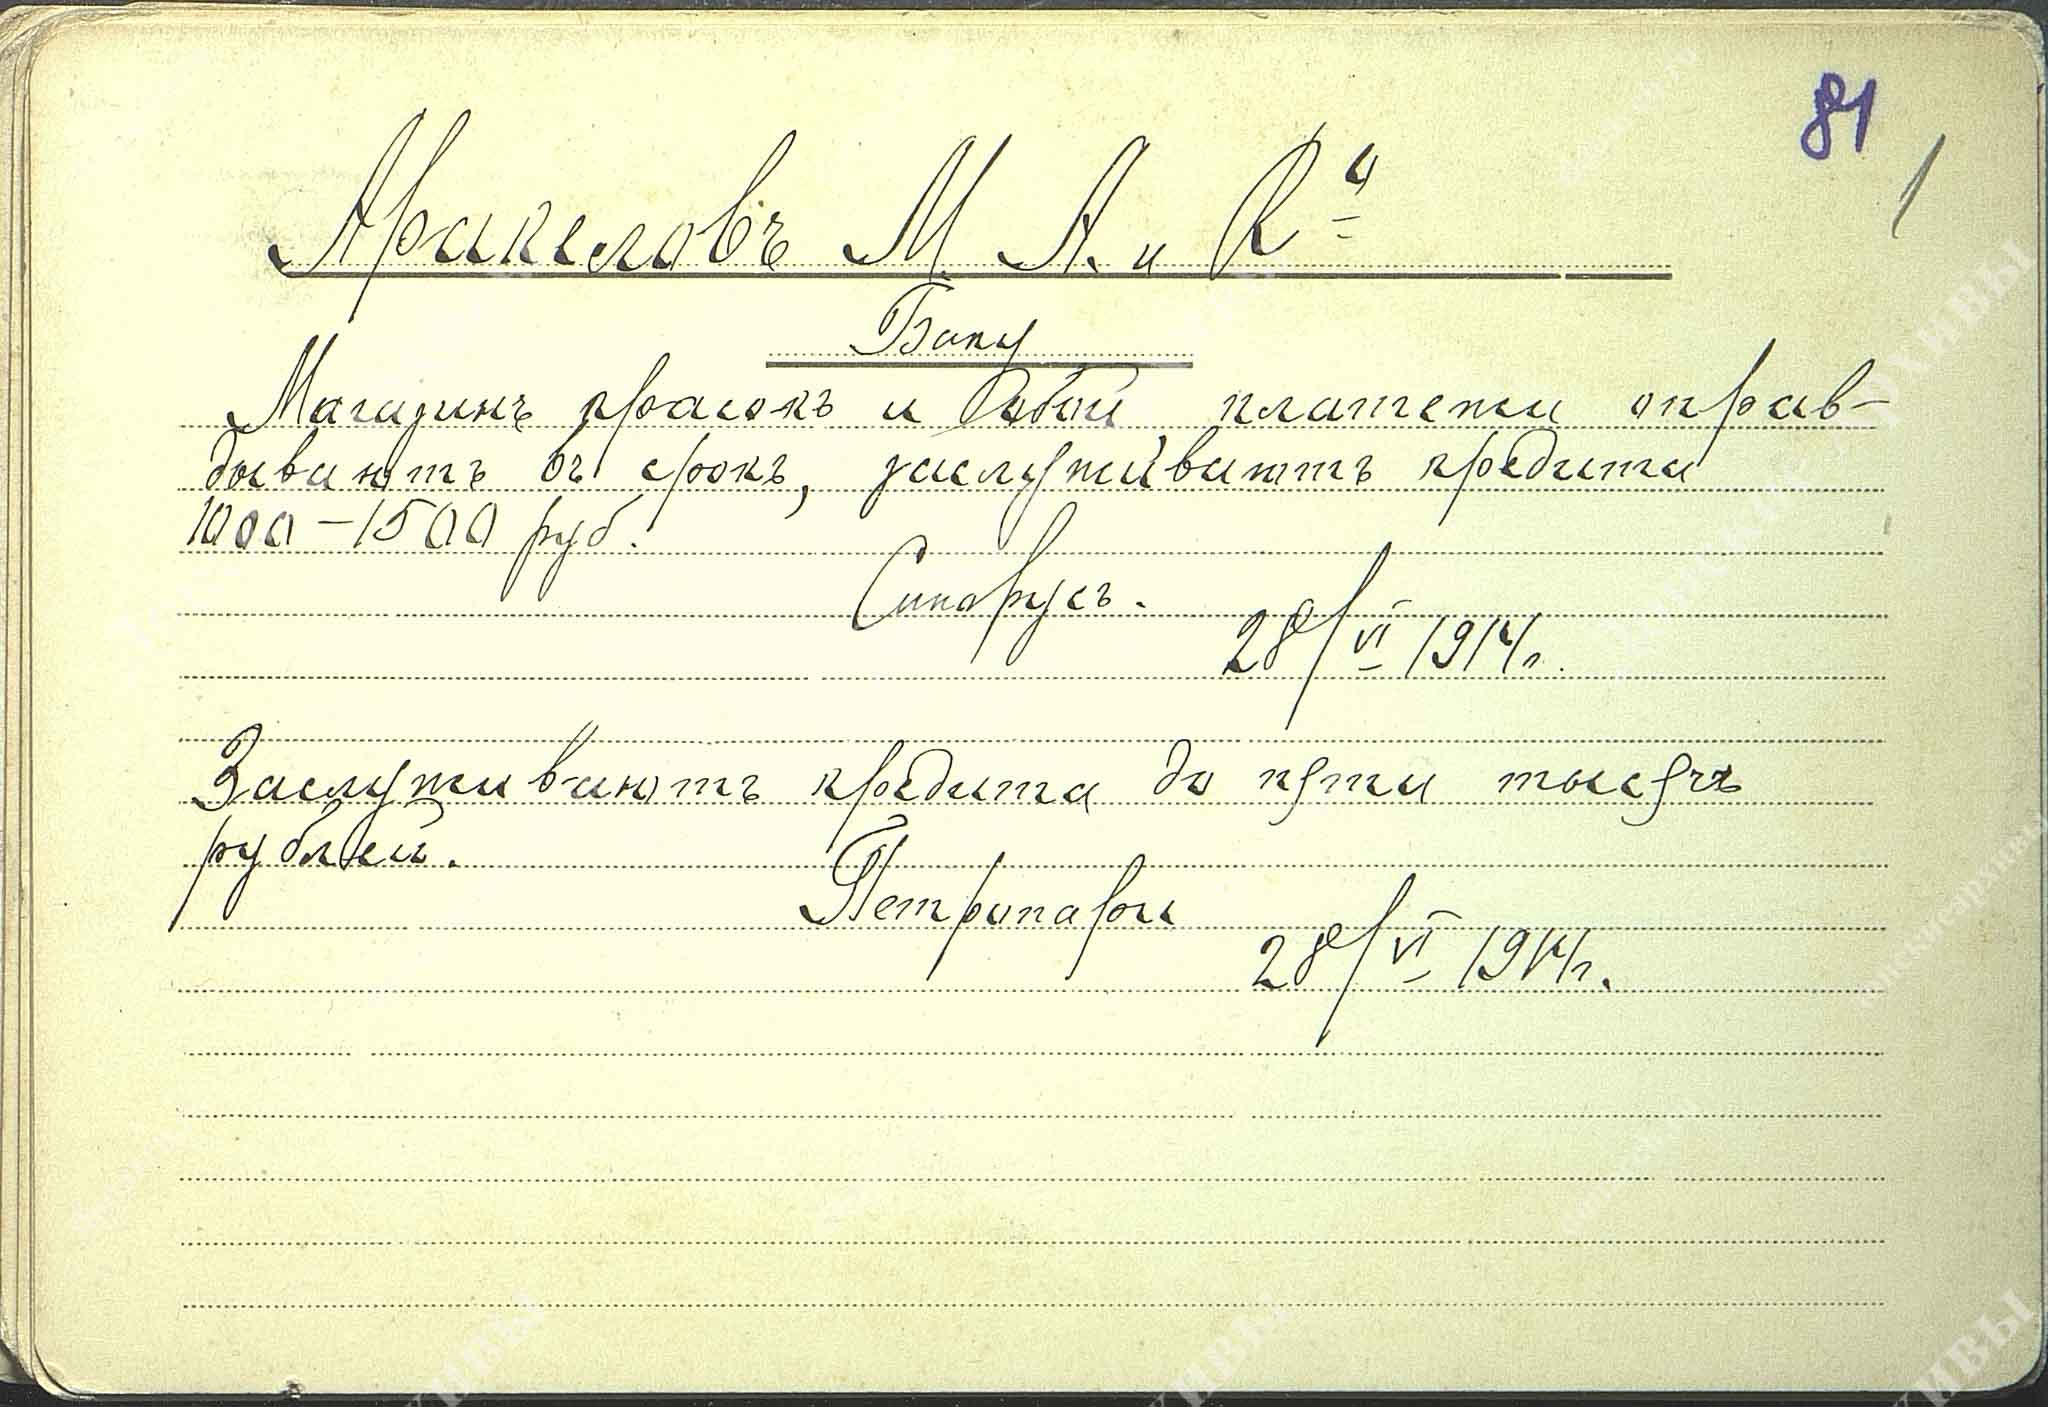 81
Аракеловъ М. А. и Ко
Баку
Магазинъ красокъ и обои платежи оправ-
дываютъ въ срокъ, заслуживаютъ кредита
1000–1500 руб.
28/VI 1914 г.
Заслуживаютъ кредита до пяти тысячъ
рублей.
28/VI 1914 г.